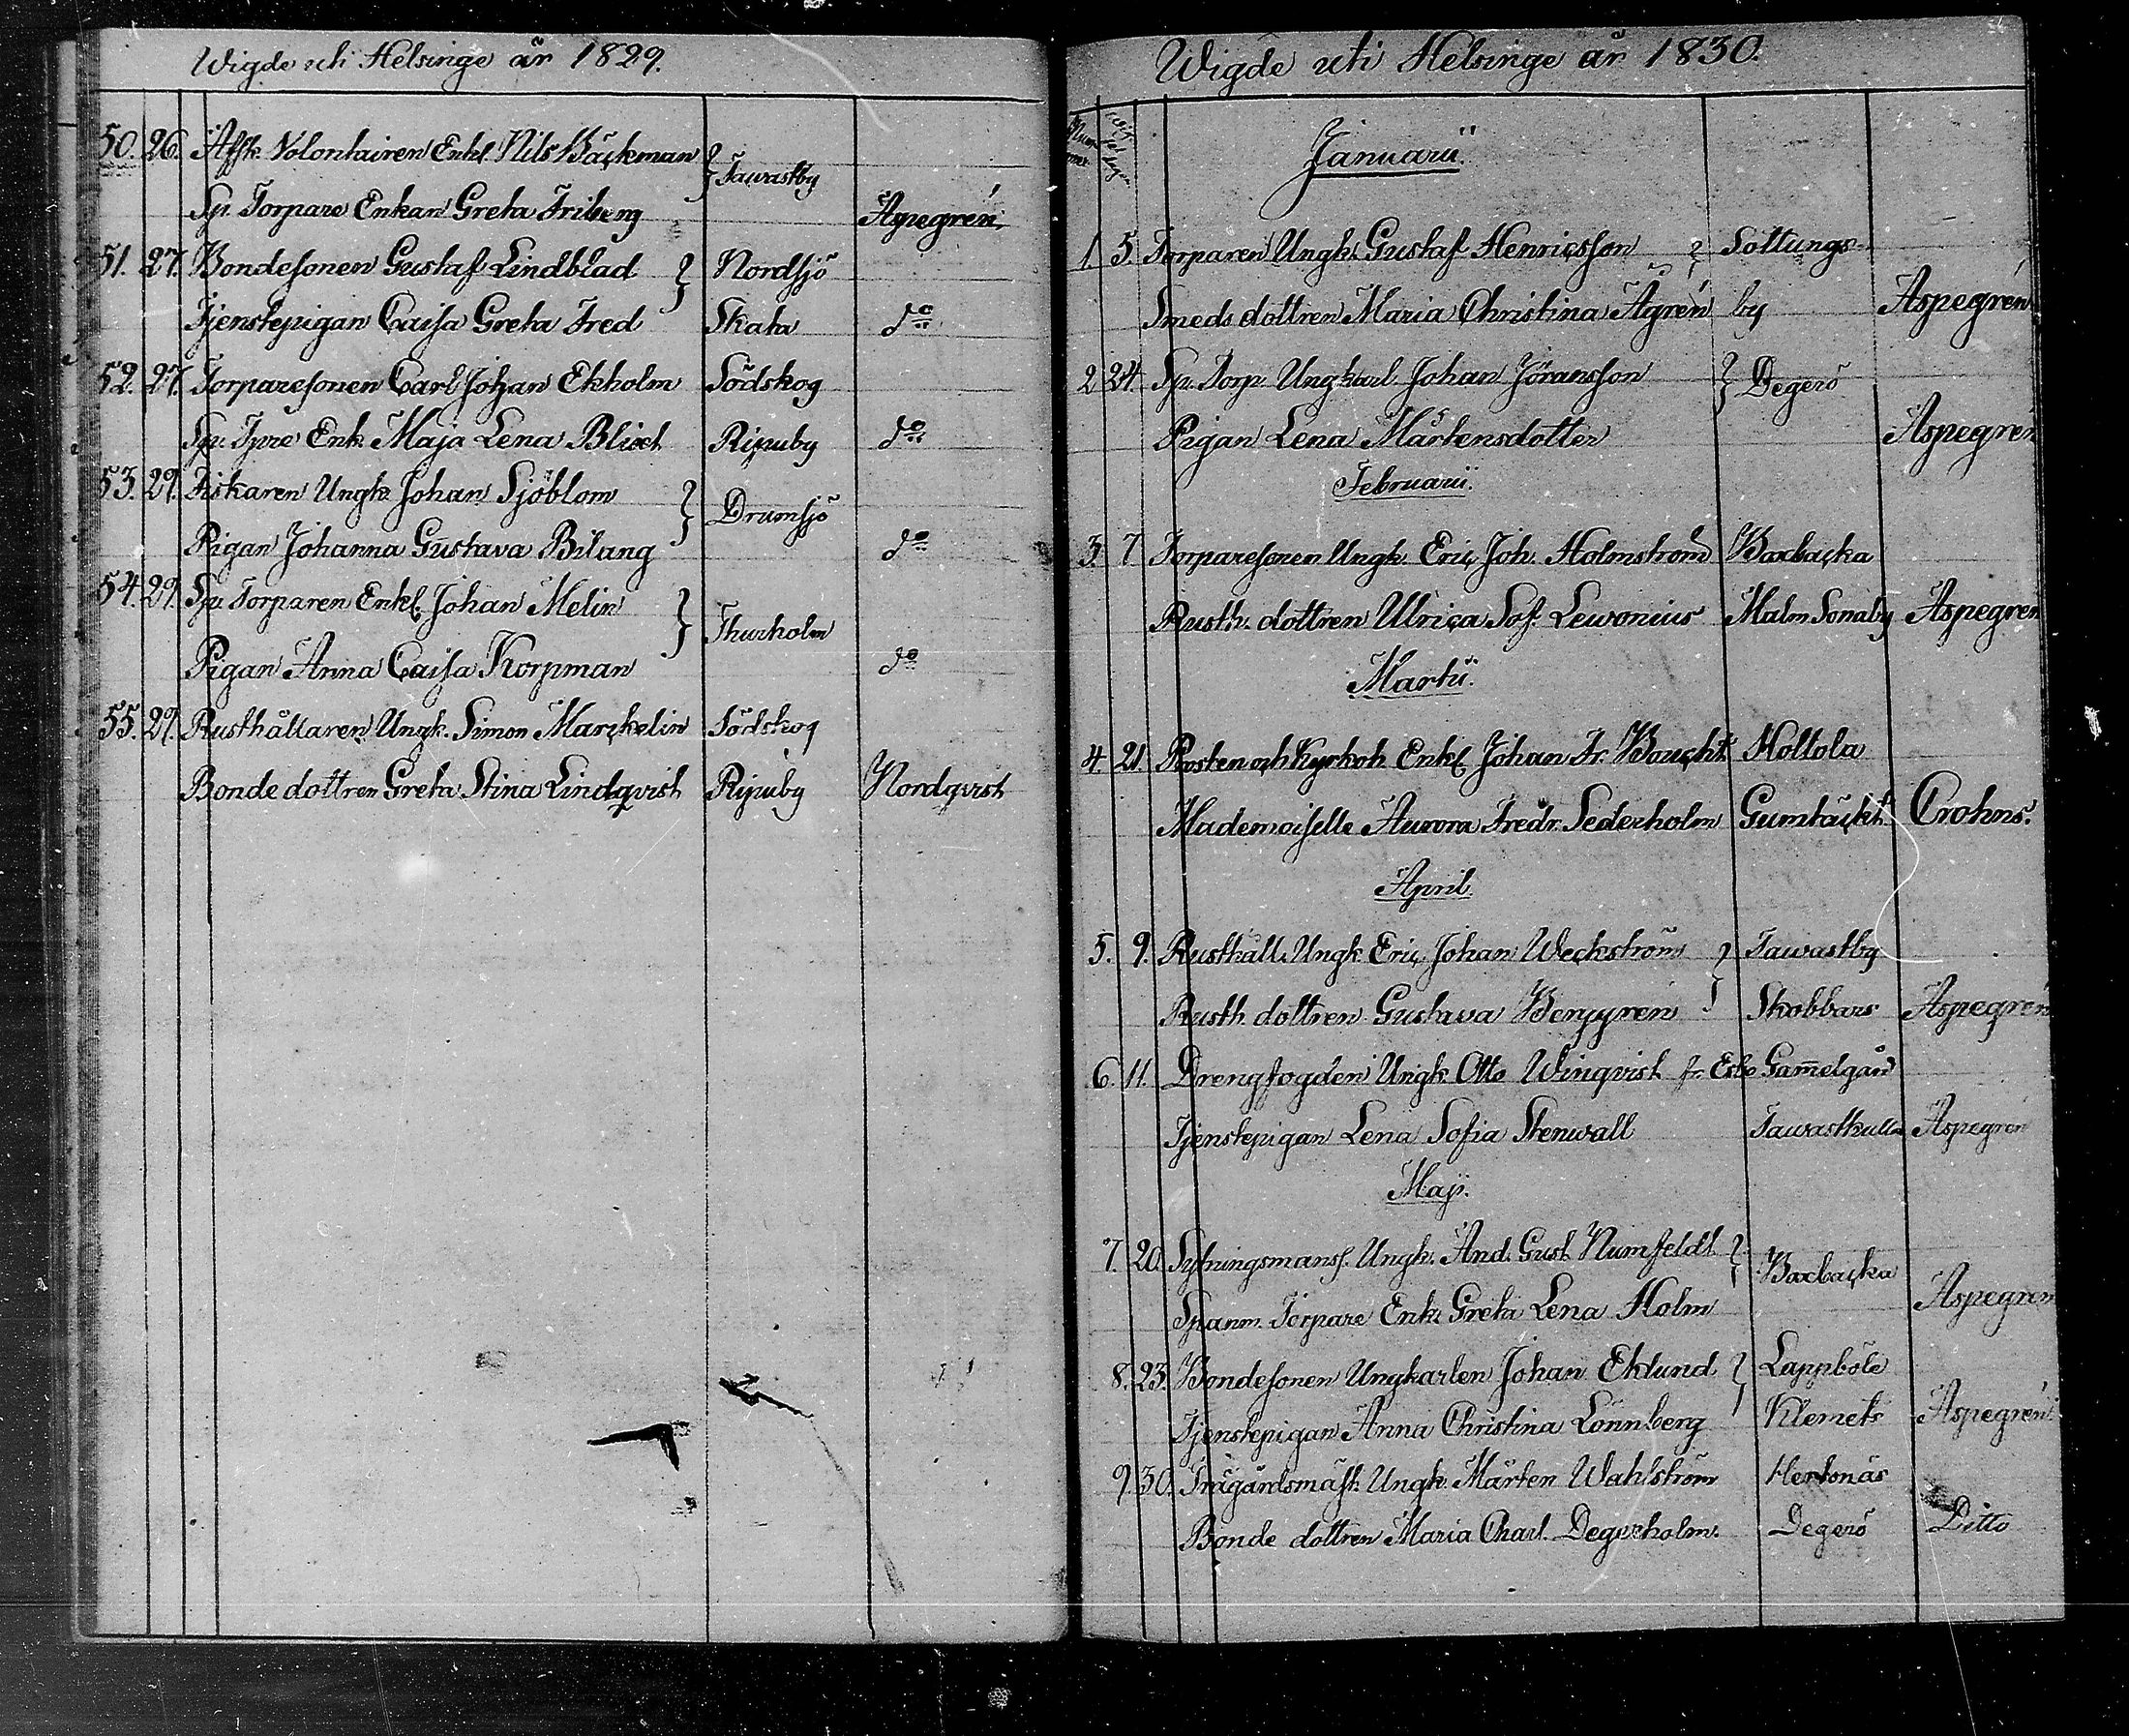 Wigde uti Helsinge år 1829.
50. 26. Afsk. Volontairen Enkl. Nils Bäckman } Tawastby
Sp. Torpare Enkan Greta Friberg Aspegrén
51. 27. Bondesonen Gustaf Lindblad } Nordsjö
Tjenstepigan Caisa Greta Fred Skata do
52. 27. Torparesonen Carl Johan Ekholm Södskog
Sp. Tpre Enk. Maja Lena Blixt Ripuby do
53. 29. Fiskaren Ungk. Johan Sjöblom } Drumsjö
Pigan Johanna Gustava Bilang do
54. 29. Sp. Torparen Enkl. Johan Melin } Thurholm
Pigan Anna Caisa Korpman do
55. 29. Rusthållaren Ungk. Simon Marckelin Södskog
Bonde dottren Greta Stina Lindqvist Ripuby Nordqvist
Wigde uti Helsinge år 1830.
Januarii.
1. 5. Torparen Ungk. Gustaf Henricsson } Sottungs
Smeds dottren Maria Christina Ågrén by Aspegrén
2 24. Sp. Torp. Ungkarl Johan Jöransson } Degerö
Pigan Lena Mårtensdotter Aspegrén
Februarii.
3. 7 Torparesonen Ungk. Eric Joh. Holmström Boxbacka
Rusth. dottren Ulrica Sof. Lewonius Malm Sonaby Aspegrén
Martii.
4. 21. Prosten och Kyrkoh. Enkl. Johan Fr. Boucht Hollola
Mademoiselle Aurora Fredr. Sederholm Gumtäckt Crohns.
April.
5. 9. Rusthåll. Ungk. Eric Johan Weckström } Tawastby
Rusth. dottren Gustava Berggren Skobbars Aspegrén
6. 11. Drengfogden Ungk. Otto Winqvist fr. Esbo Gam̅elgård
Tjenstepigan Lena Sofia Stenwall Tawastkulla Aspegrén
Maji.
7. 20. Sytningsmans s. Ungk. And. Gust. Numfeldt } Boxbacka
Spanm. Torpare Enk. Greta Lena Holm Aspegrén
8. 23. Bondesonen Ungkarlen Johan Eklund } Lappböle
Tjenstepigan Anna Christina Lönnberg Klemets Aspegrén
9. 30. Trägårdsmäst. Ungk. Mårten Wahlström Hertonäs
Bonde dottren Maria Charl. Degerholm. Degerö Ditto